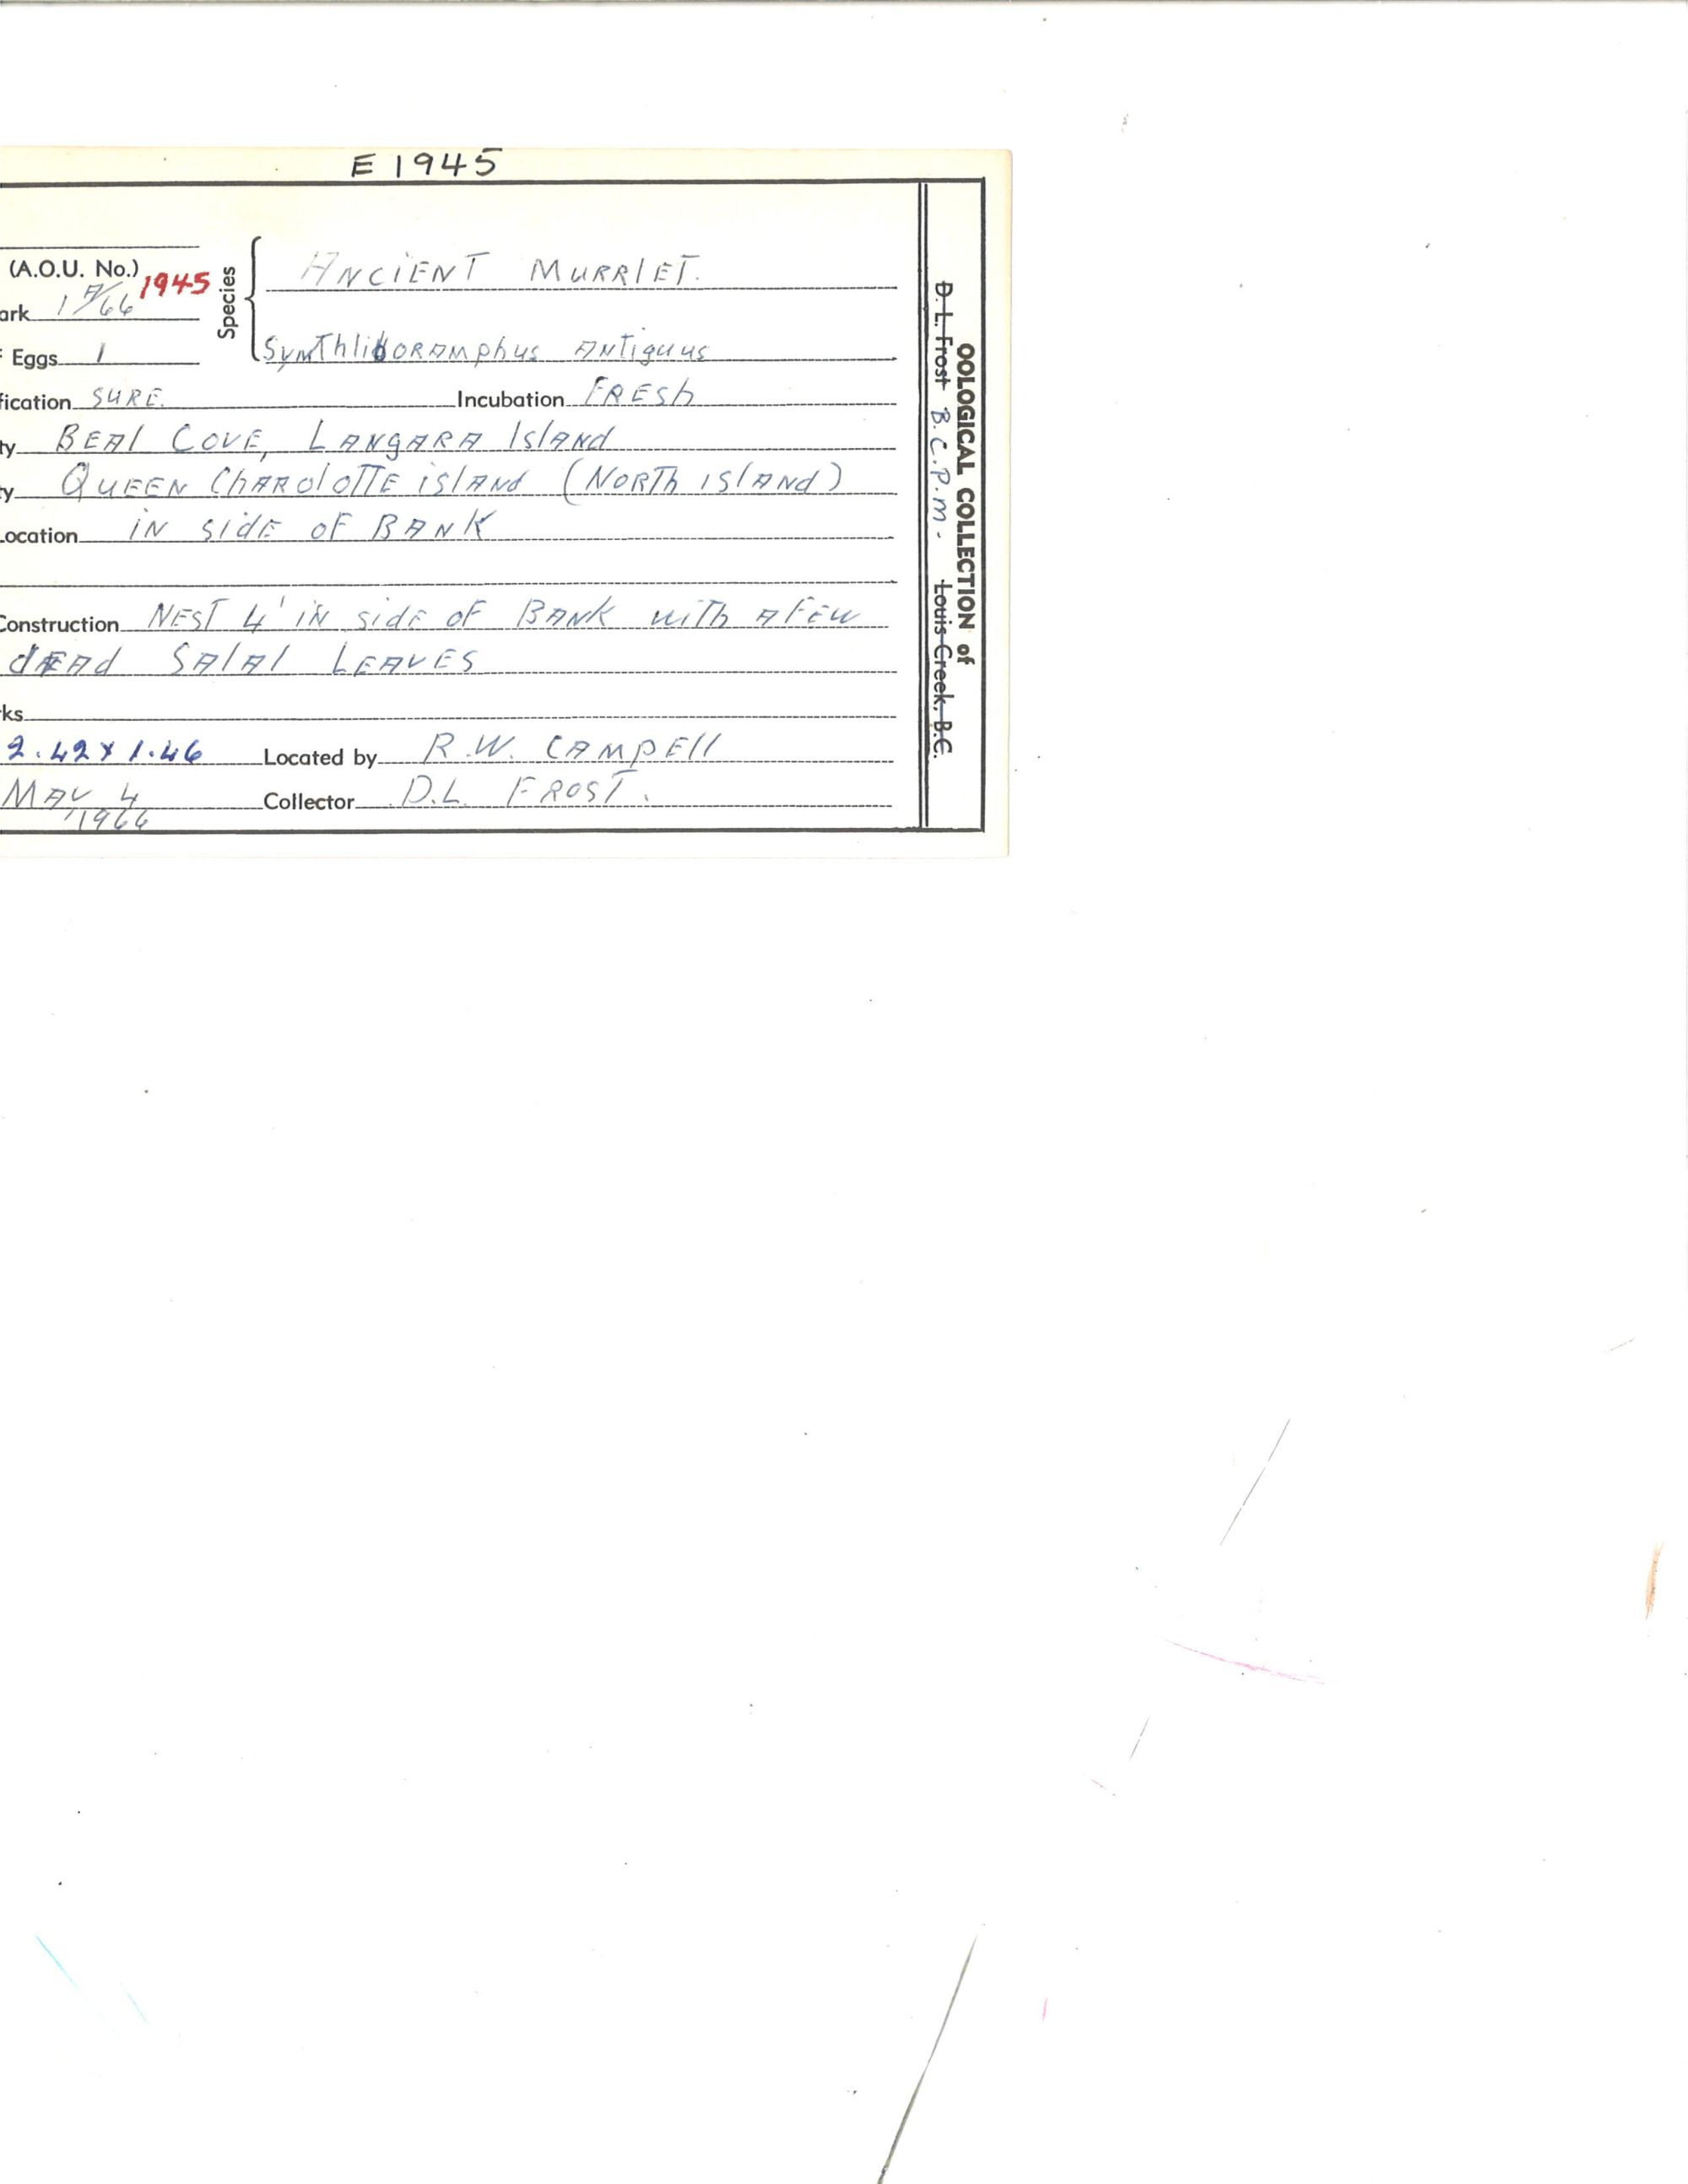 E 1945
(A.O.U. No.) 1945
ark 1 A/66
Species
ANCIENT MURRlET.
SYNThliboRAMphus ANTiguus
Eggs 1
fication SURE. Incubation FRESh
ty BEAl COVE, LANgARA IslANd
ty QUEEN ChAROlOTTE islANd (NORTh islANd)
Location iN sidE OF BANK
Construction NEST 4' iN sidE OF BANK wiTh A FEW
dEAd SAlAl LEAVES
ks
2.42 x 1.46 Located by R.W. CAMPEll
MAY 4 Collector D.L. FROST.
1966
OOLOGICAL COLLECTION of
D. L. Frost B.C.P.M. Louis Creek, B.C.